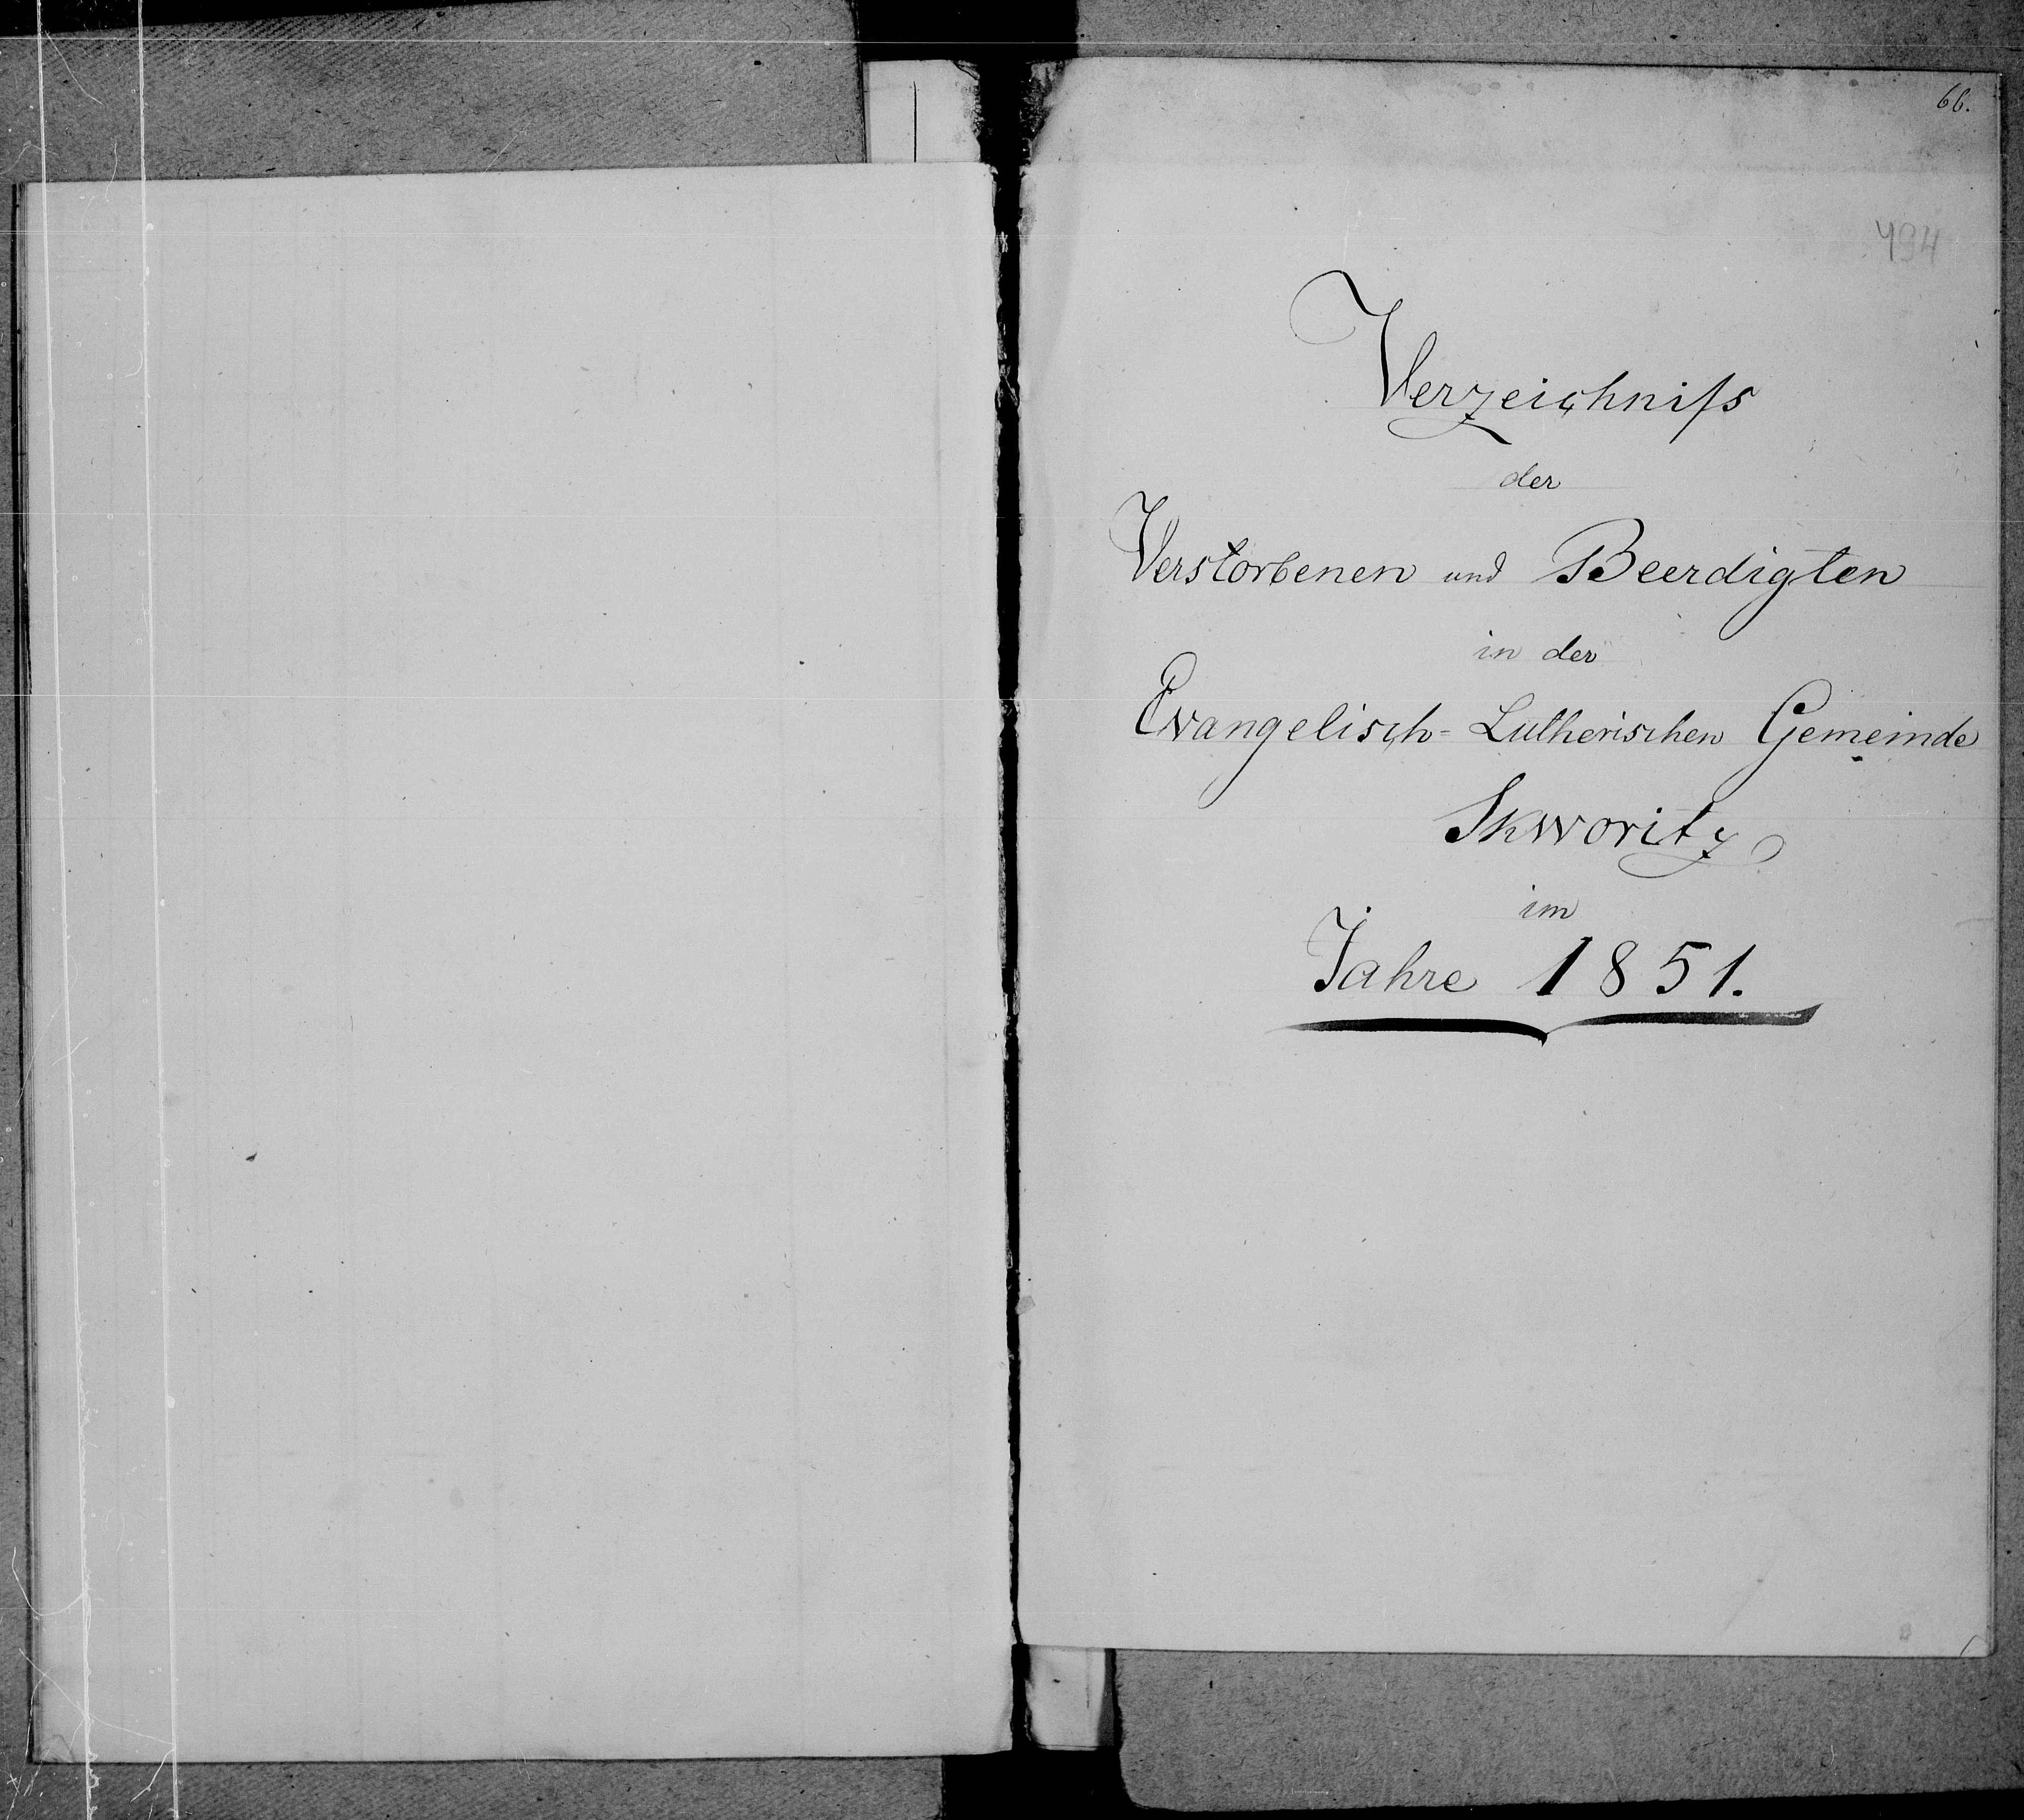 66.
494
Verzeichniſs
der
Verstorbenen und Beerdigten
in der
Evangelisch-Lutherischen Gemeinde
Skworitz
im
Jahre 1851.